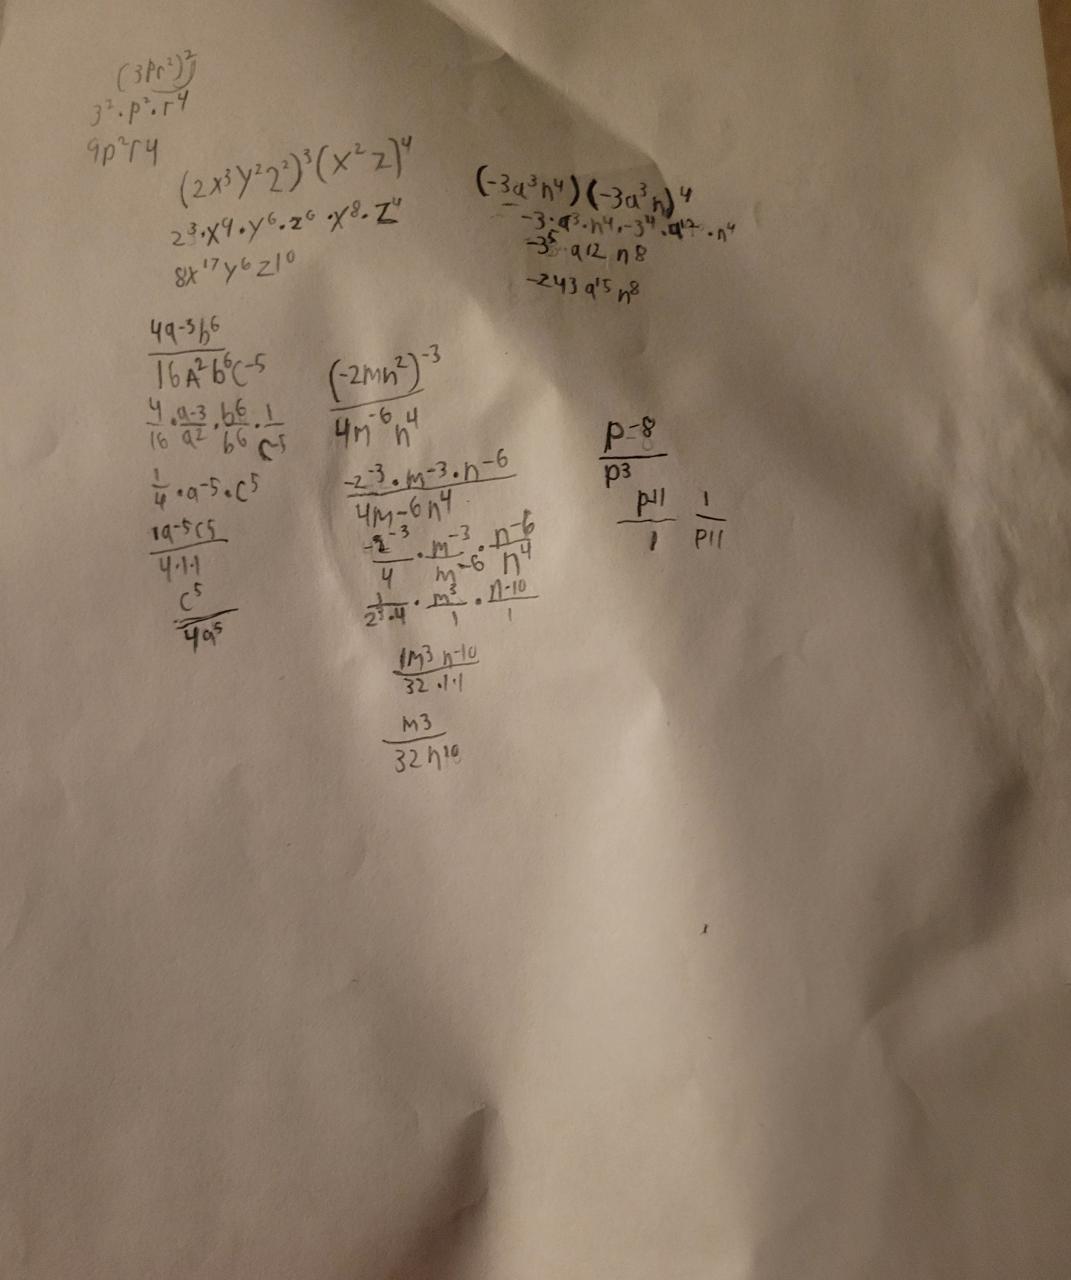 (3Pr²)²
3²·p²·r⁴
9p²r4
(2x³y²2²)³(x²z)⁴
2³·x⁹·y⁶·z⁶·x⁸·z⁴
8x¹⁷y⁶z10
(-3a³n⁴)(-3a³n)⁴
-3·a³·n⁴·-3⁴·a¹²·n⁴
-3⁵·a12 n8
-243 a¹⁵ n⁸
4a-3b6
16A²b⁶c-5
4/16·a-3/a2·b6/b6·1/c-5
1/4·a-5·c5
1a-5c5
4·1·1
c5
4a5
(-2mn²)⁻³
4m⁻⁶n⁴
-2⁻³·m-3·n-6
4m-6n4
-2⁻³/4·m-3/m-6·n-6/n4
1/2³·4·m³/1·n-10/1
1m3 n-10
32·1·1
m3
32n10
p-8
p3
p-11/1 1/p11